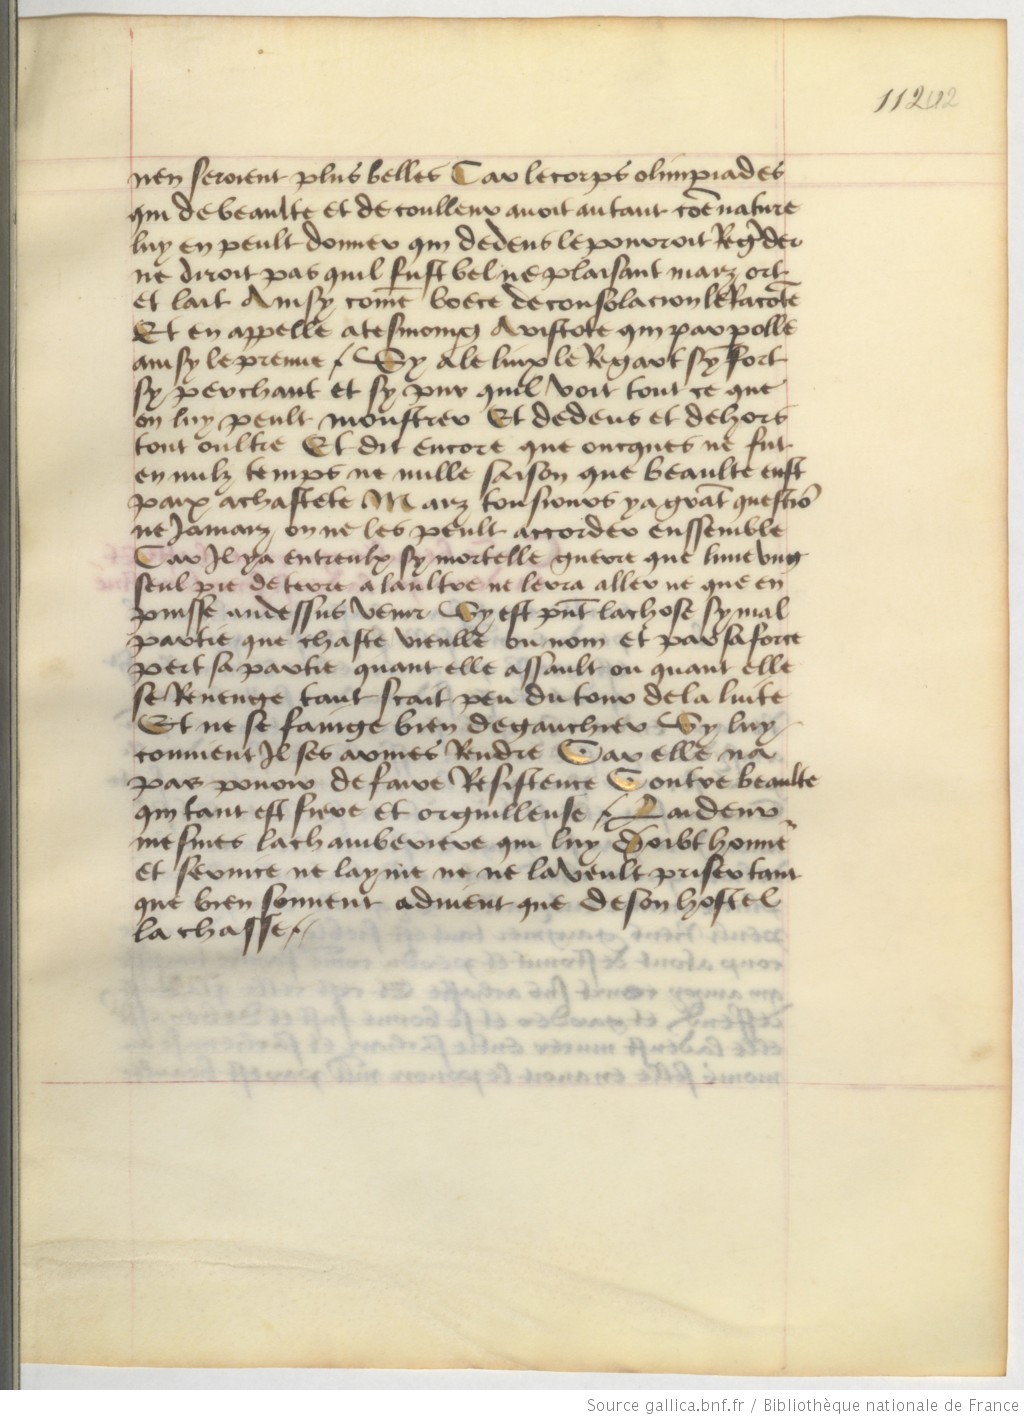 112 112
nen seroient plus belles Car le corps olimpiades
qui de beaulte et de coulleur avoit autant cõe nature
luy en peult donner qui dedens le pourroit Reg'der
ne diroit pas quil fust bel ne plaisant maiz ort
et lait Ainsy come boece de consolacion le Racote
Et en appelle a tesmoing Aristote qui par polle
ainsy le preuue / Sy a le linx le Regart sy fort
sy perchant et sy pur quil voit tout ce que
on luy peult monstrer Et dedens et dehors
tout oultre Et dit encore que oncques ne fut
en nulz temps ne nulle saison que beaulte eust
paix a chastete Maiz tousiours y a grat questio
ne Jamaiz on ne les peult accorder enssemble
Car Il y a entreulx sy mortelle guerre que lune ung
seul pie de terre a laultre ne lerra aller ne que en
puisse au dessus venir Sy est pnt la chose sy mal
partie que chaste vieulle ou nom et par sa force
pert sa partie quant elle assault ou quant elle
se Revenge tant scait peu du tour de la luite
Et ne se fainge bien de gauchier Sy luy
convient Il ses armes Rendre Car elle na
pas pouoir de faire Resistence Contre beaulte
qui tant est fiere et orguilleuse / Laideur
mesmes la chamberiere qui luy doibt honne
et service ne layme ne ne la veult priser tant
que bien souvent advient que de son hostel
la chasse /
Source gallica.bnf.fr / Bibliothèque nationale de France